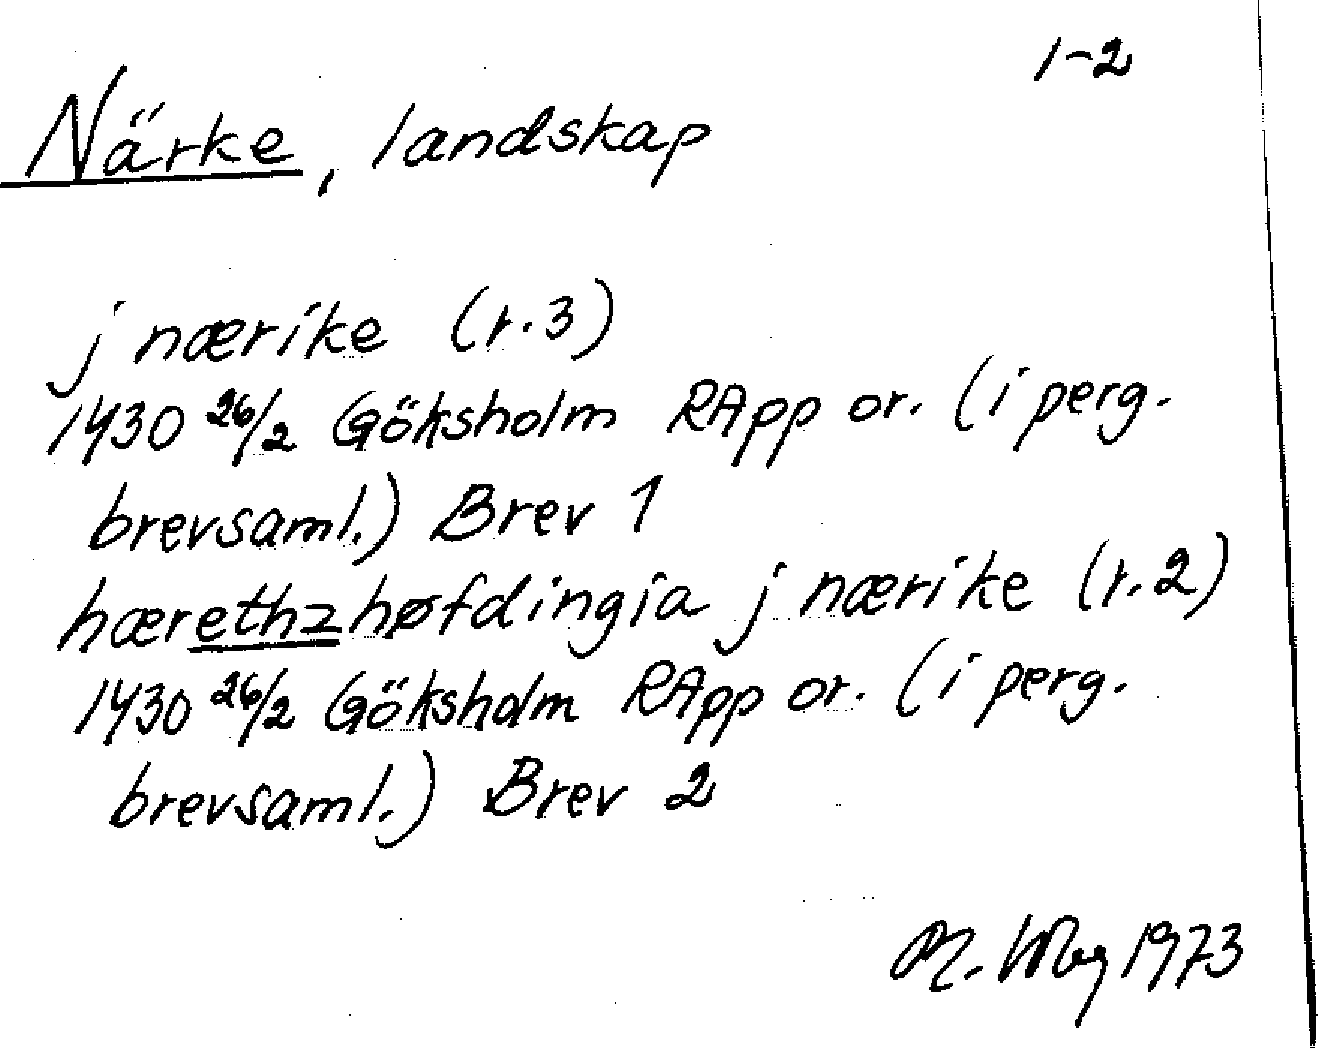 1-2
Närke, landskap
j nærike (r.3)
1430 26/2 Göksholm RApp or. (i perg.
brevsaml.) Brev 1
hærethzhøfdingia j nærike (r.2)
1430 26/2 Göksholm RApp or. (i perg.
brevsaml.) Brev 2
1973